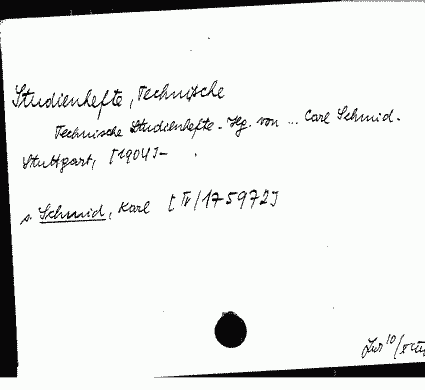 Studienhefte, Technische
Technische Studienhefte. Hg. von ... Carl Schmid.
Stuttgart, [1904]-
s. Schmid, Karl [Tr/175972]